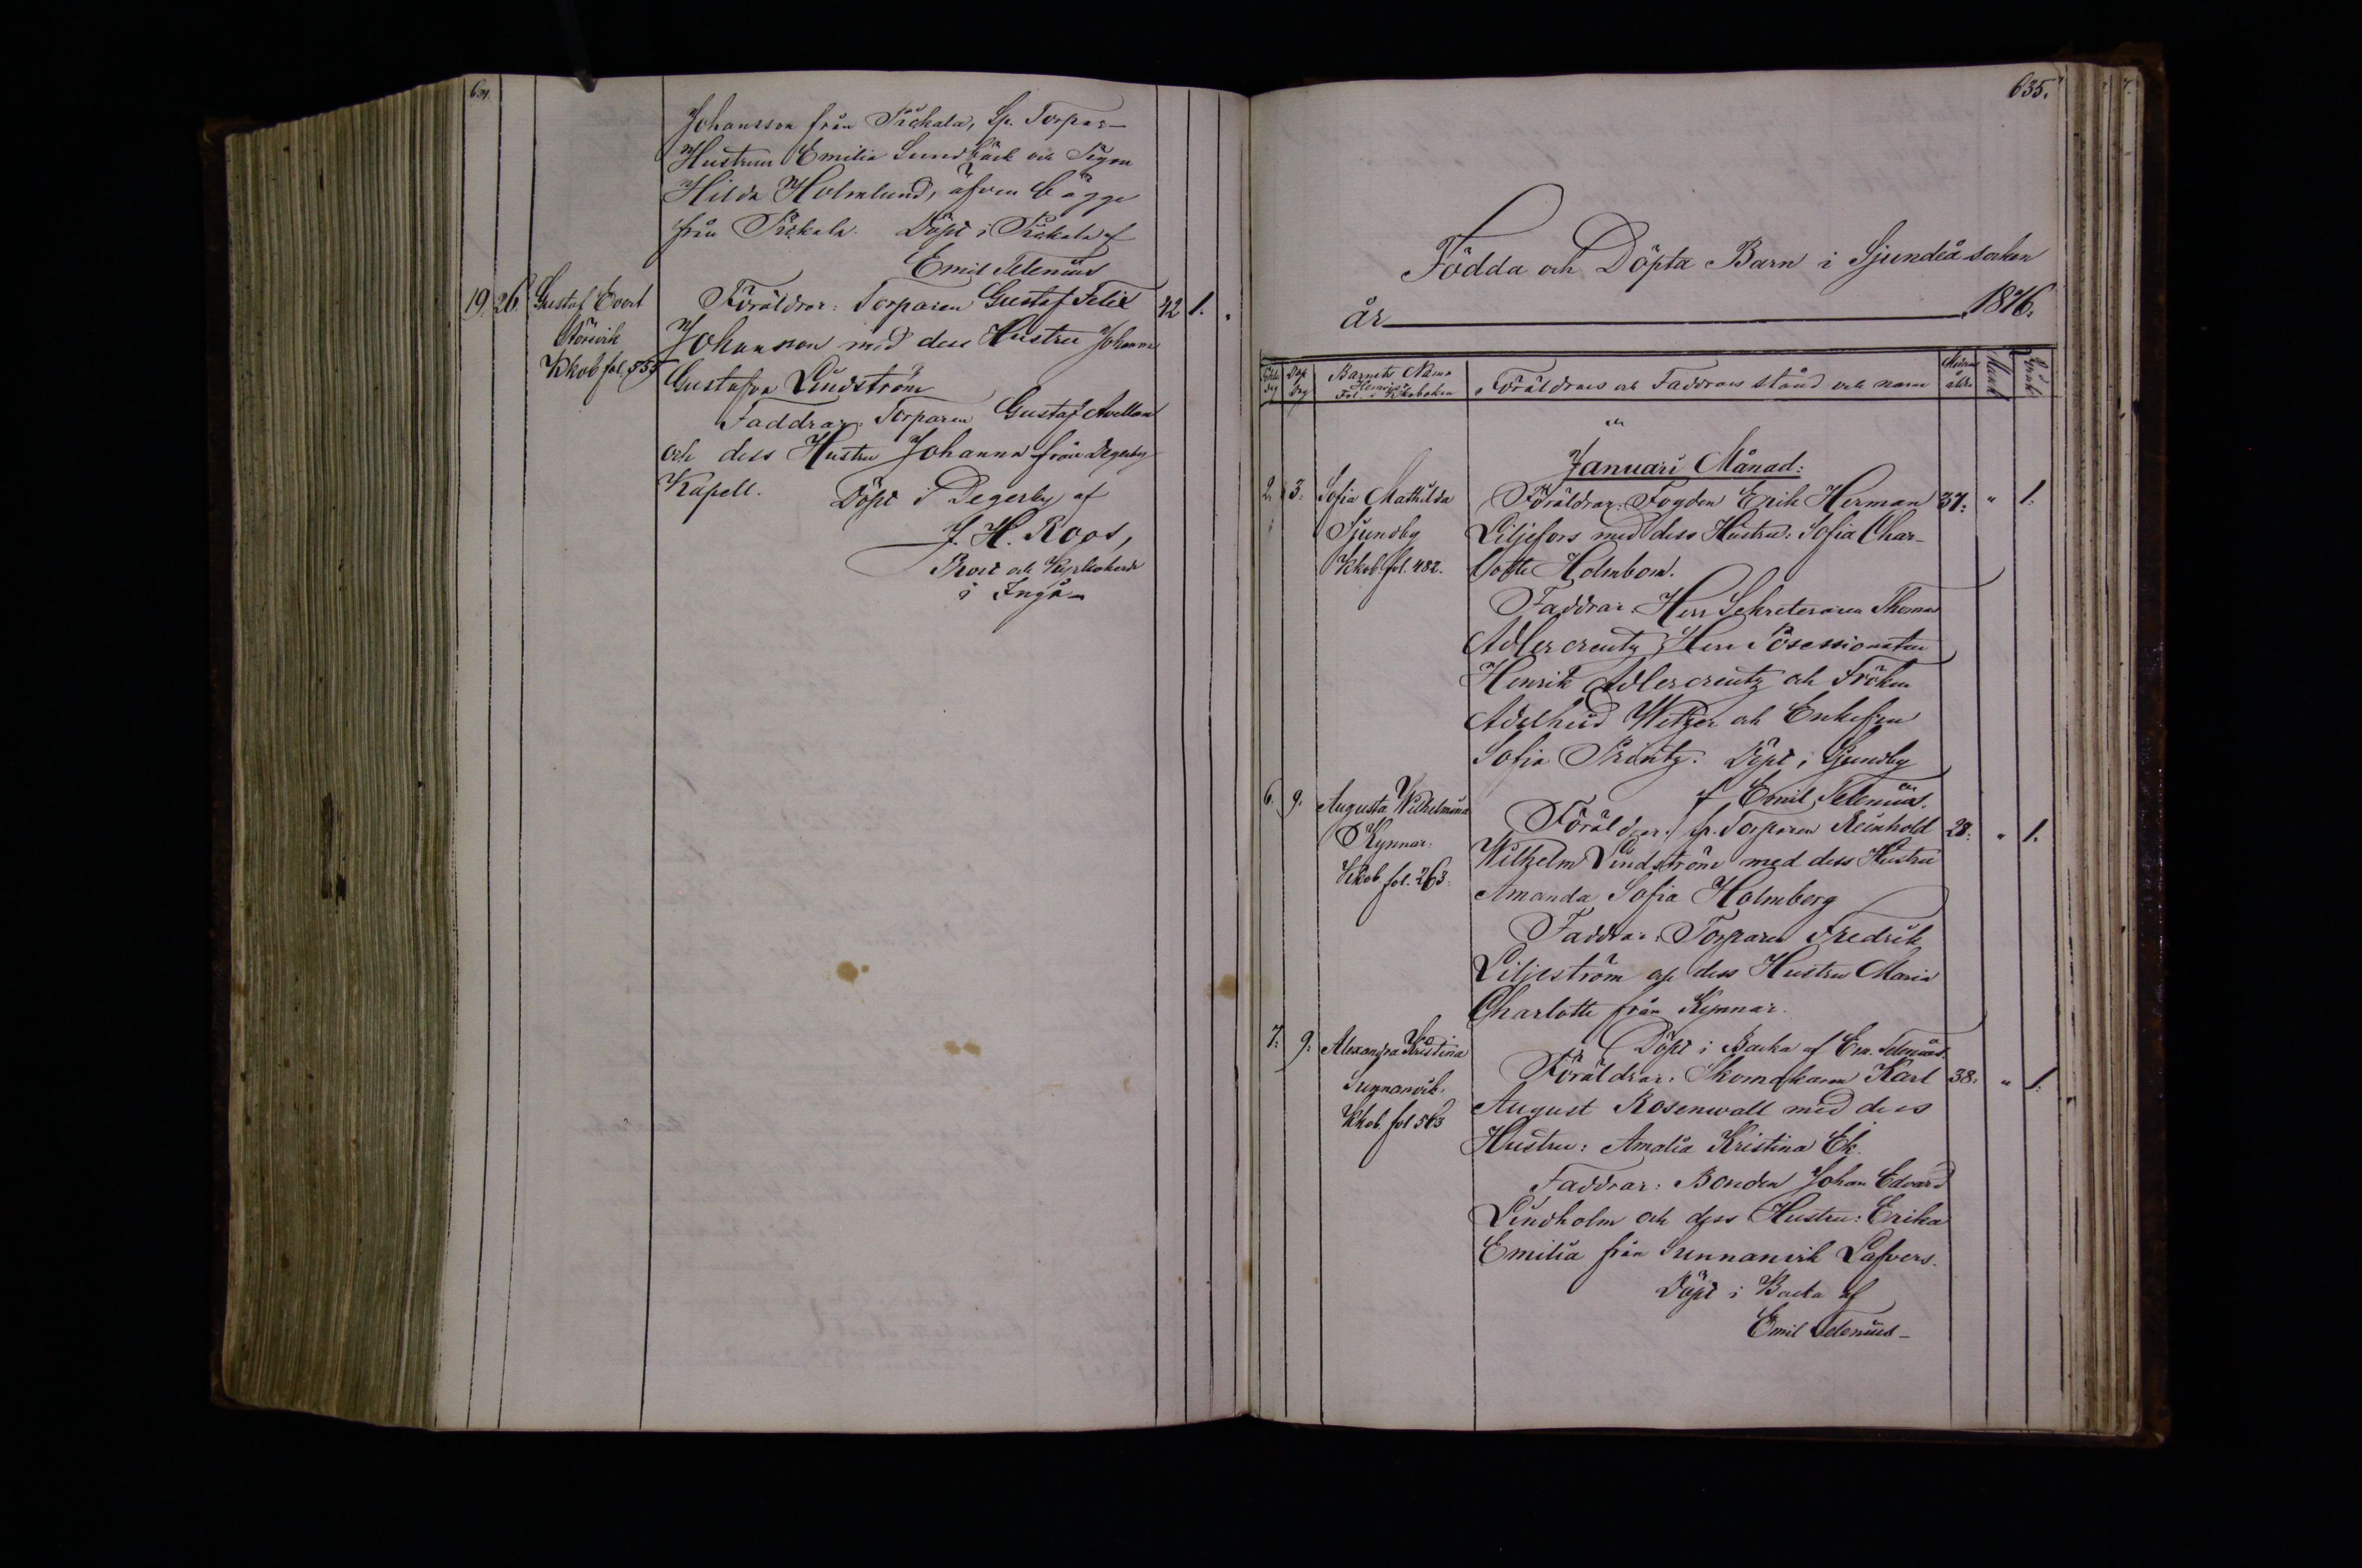 634.
Johansson från Pickala, Sp. Torpar-
Hustrun Emilia Sundbäck och Pigan
Hilda Holmlund, äfven bägge
från Pickala. Döpt i Pickala af
Emil Telenius
19. 26. Gustaf Evert Föräldrar: Torparen Gustaf Felix 42 1. "
Störsvik Johansson med dess Hustru Johanna
Kkob fol. 555 Gustafva Lindström
Faddrar: Torparen Gustaf Avellan
och dess Hustru Johanna från Degerby
Kapell. Döpt i Degerby af
J. H. Roos,
Prost och Kyrkoherde
i Ingå-
635.
Födda och Döpta Barn i Sjundeå socken
år 1876.
Födelse dag Dop dag Barnets Namn Hemvist Fol. i Kkoboken Föräldrars och Faddrars stånd och namn Modrens ålder Mank. Qvink.
Januari Månad:
2. 3. Sofia Mathilda Föräldrar: Fogden Erik Herman 37. " 1.
Sjundby Liljefors med dess Hustru: Sofia Char-
Kkob. fol. 482. lotte Holmbom.
Faddrar: Herr Sekreteraren Thomas
Adlercreutz, Herr Possessionaten
Henrik Adlercreutz och Fröken
Adelheid Wetzer och Enkefru
Sofia Printz. Döpt i Sjundby
af Emil Telenius.
6. 9. Augusta Wilhelmina Föräldrar: Sp. Torparen Reinhold 28. " 1.
Kynnar. Wilhelm Lindström med dess Hustru
Kkob. fol. 263. Amanda Sofia Holmberg
Faddrar: Torparen Fredrik
Liljeström och dess Hustru Maria
Charlotte från Kynnar.
Döpt i Backa af Em. Telenius.
7. 9. Alexandra Kristina Föräldrar: Skomakaren Karl 38. " 1.
Sunnanvik. August Rosenwall med dess
Kkob. fol 563 Hustru: Amalia Kristina Ek.
Faddrar: Bonden Johan Edvard
Lindholm och dess Hustru: Erika
Emilia från Sunnanvik Lafvers.
Döpt i Backa af
Emil Telenius-